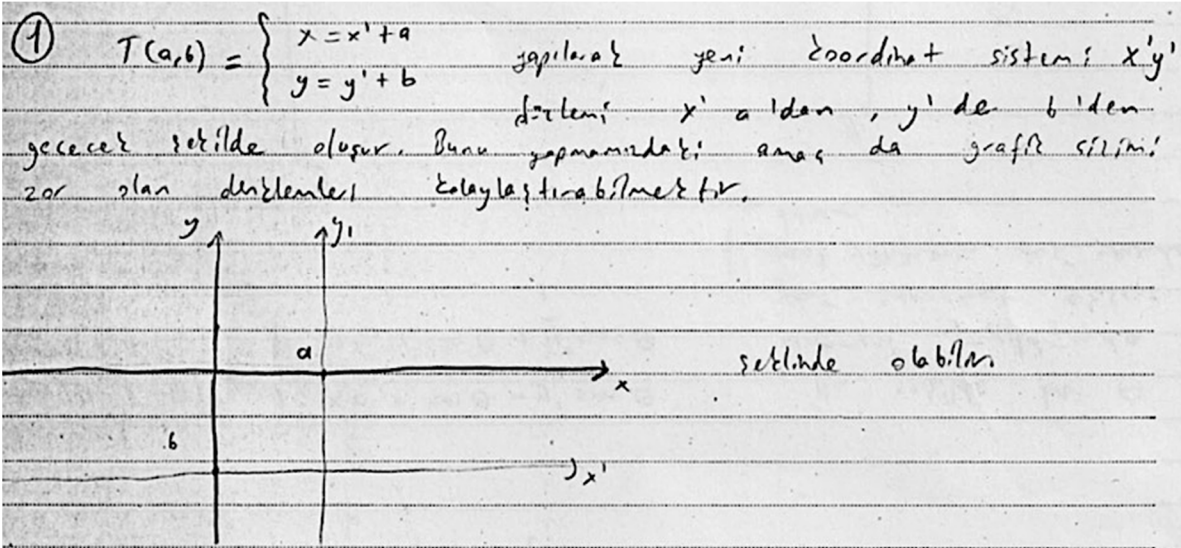 ① T(a,b) = { x = x' + a
y = y' + b
yapılarak yeni koordinat sistemi x'y'
düzlemi x' a'dan, y' de b'den
geçecek şekilde oluşur. Bunu yapmamızdaki amaç da grafik çizimi
zor olan denklemleri kolaylaştırabilmektir.
y y₁
a
x
şeklinde olabilir.
b
x'